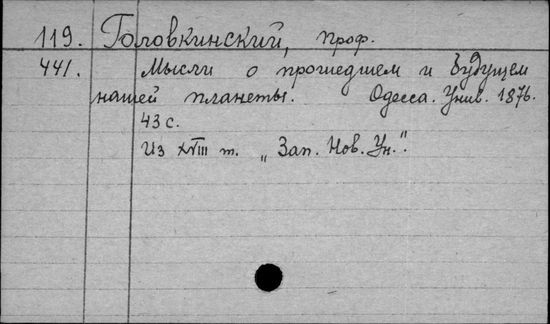 119. Головкинский, проф.
441. Мысли о прошедшем и будущем
нашей планеты. Одесса. Унив. 1876.
43 с.
Из XVIII т. „Зап. Нов. Ун.".